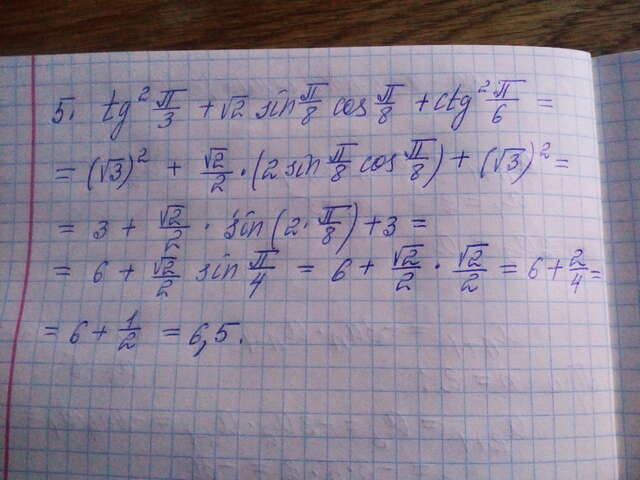 5. tg² π/3 + √2 sin π/8 cos π/8 + ctg² π/6 =
= (√3)² + √2/2 · (2 sin π/8 cos π/8) + (√3)² =
= 3 + √2/2 · sin(2 · π/8) + 3 =
= 6 + √2/2 sin π/4 = 6 + √2/2 · √2/2 = 6 + 2/4 =
= 6 + 1/2 = 6,5.